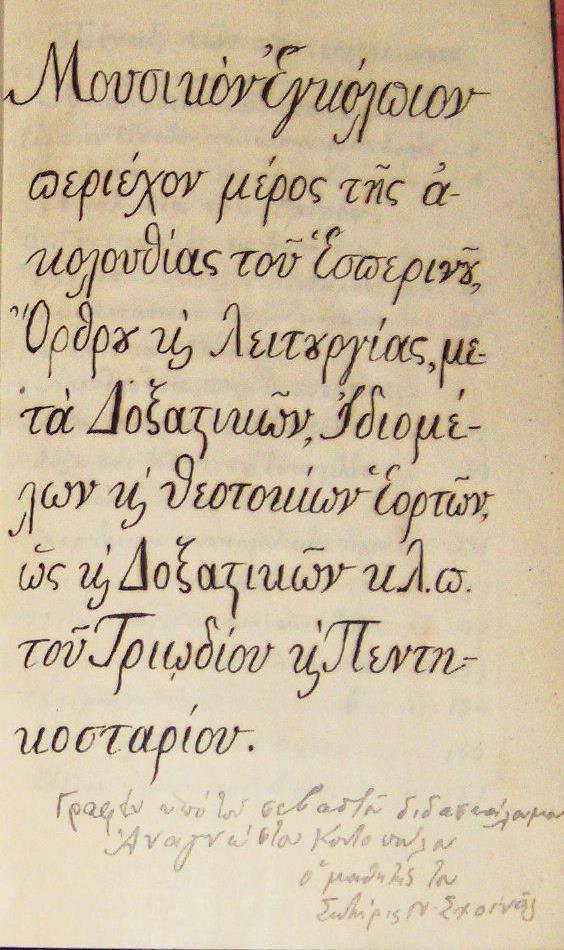 Μουσικὸν Ἐγκόλπιον
περιέχον μέρος τῆς ἀ-
κολουθίας τοῦ Ἑσπερινοῦ,
Ὄρθρου κ̀ λειτουργίας, με-
τὰ Δοξαστικῶν, Ἰδιομέ-
λων κ̀ θεοτοκίων Ἑορτῶν,
ὡς κ̀ Δοξαστικῶν κ.λ.π.
τοῦ Τριῳδίου κ̀ Πεντη-
κοσταρίου.
Γραφὲν ὑπὸ τοῦ σεβαστοῦ διδασκάλου μου
Ἀναγνώστου Κοντοπούλου
ὁ μαθητής του
Σωτήρις Ν. Σχοινᾶς